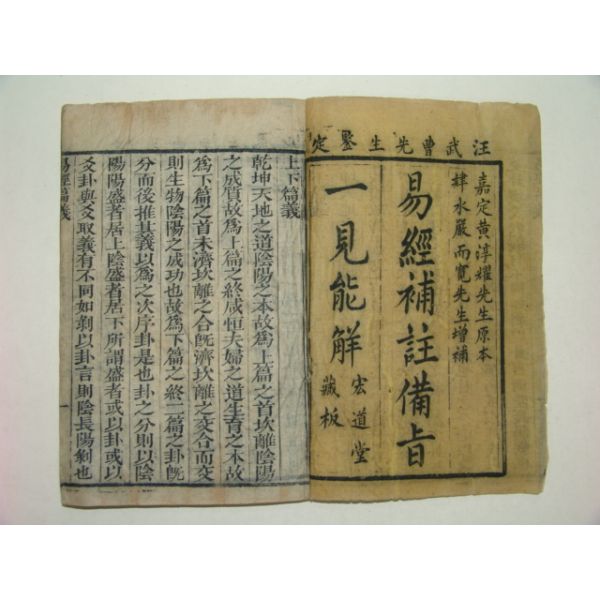 汪武曹先生鑒定
嘉定黃淳耀先生原本
肄水嚴而寬先生增補
易經補註備旨
一見能解
宏道堂
藏板
上下篇義
乾坤天地之道陰陽之本故為上篇之首坎離陰陽
之成質故為上篇之終咸恒夫婦之道生育之本故
為下篇之首未濟坎離之合旣濟坎離之交合而交
則生物陰陽之成功也故為下篇之終二篇之卦旣
分而後推其義以為之次序卦是也卦之分則以陰
陽陽盛者居上陰盛者居下所謂盛者或以卦或以
爻卦與爻取義有不同如剝以卦言則陰長陽剝也
易經篇義
一